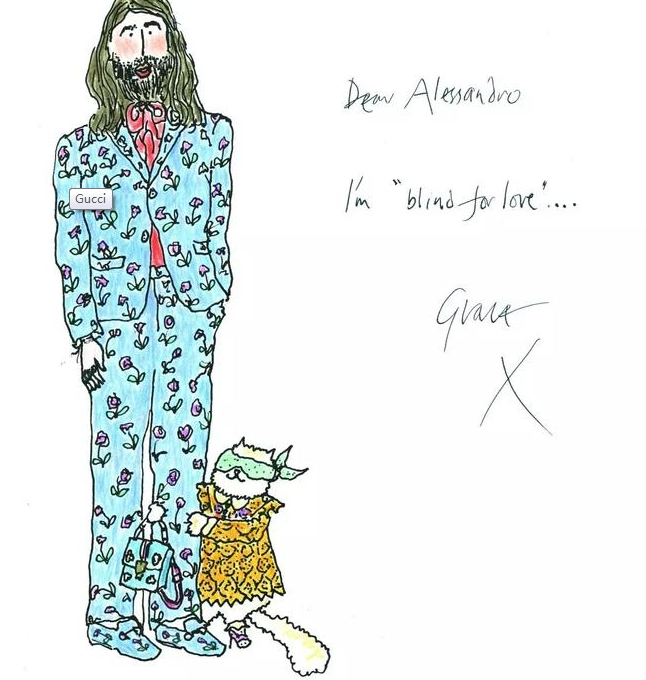 Dear Alessandro
Gucci
I'm "blind for love"....
Grace
X